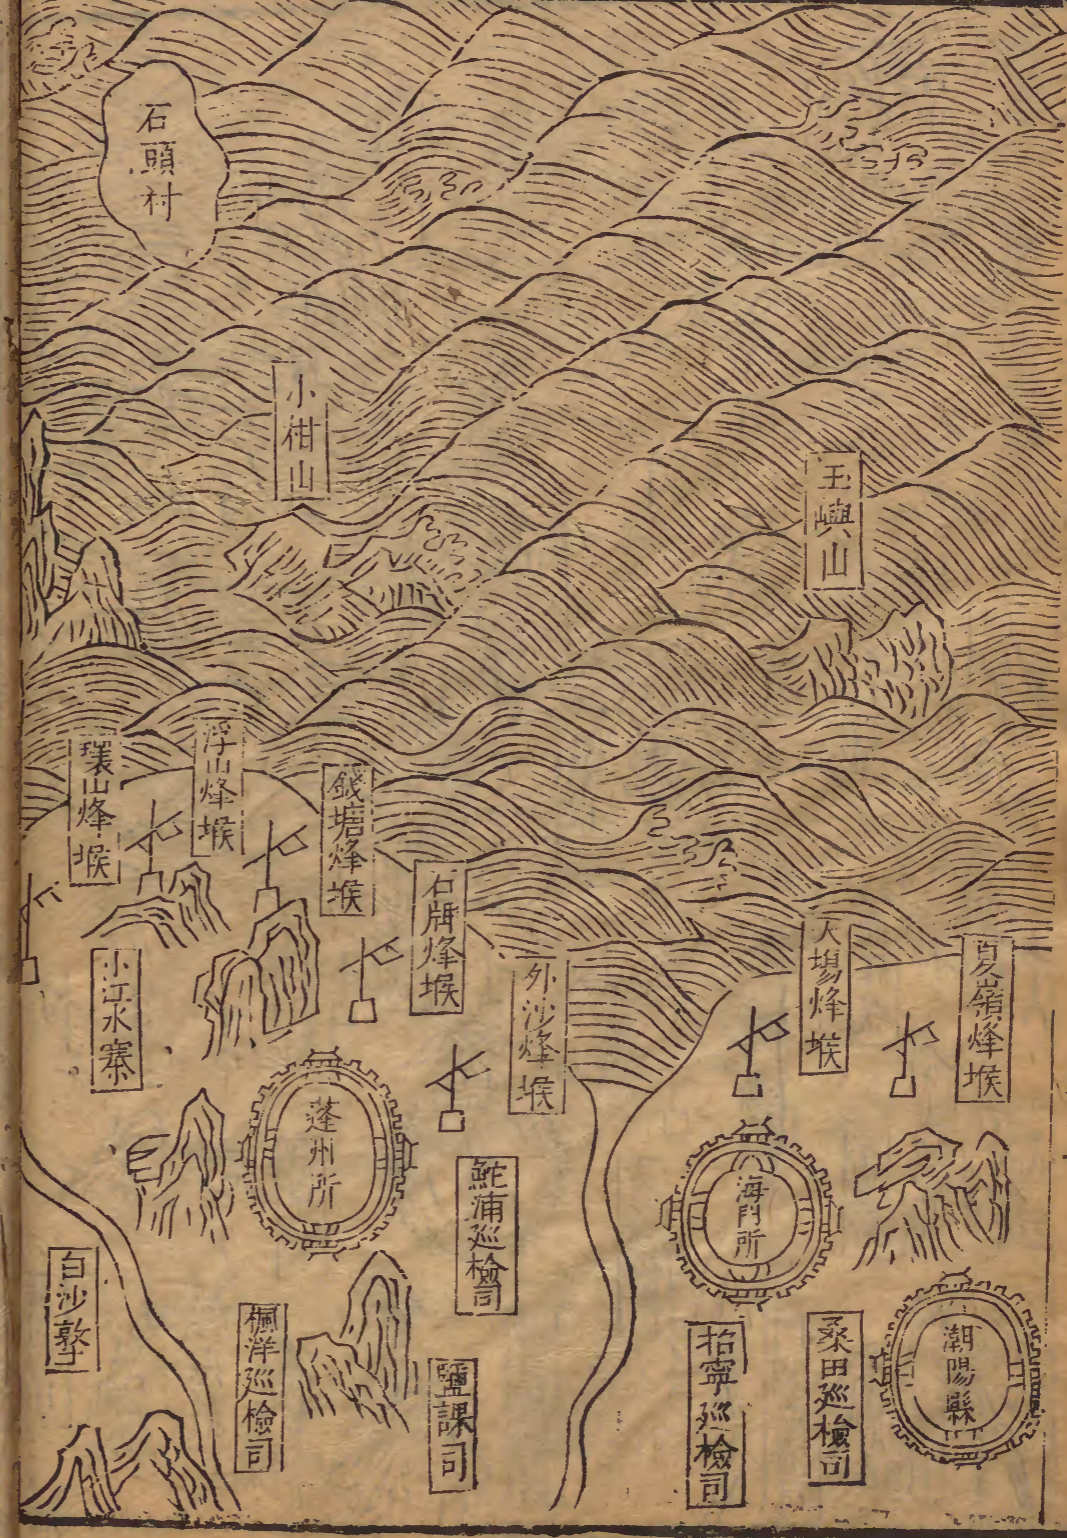 石頭村
小柑山
玉嶼山
夏嶺烽堠
大場烽堠
外沙烽堠
石牌烽堠
錢塘烽堠
浮山烽堠
環山烽堠
小江水寨
蓬州所
海門所
潮陽縣
鮀浦巡檢司
桑田巡檢司
招寧巡檢司
鹽課司
楓洋巡檢司
白沙墩